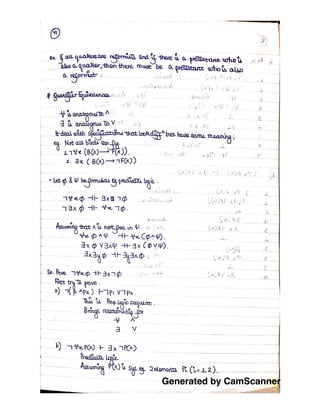 Ex. If all quakers are reformists and if there is a protestant who is
also a quaker, then there must be a protestant who is also
a reformist.
# Quantifier Equivalences
∀ is analogous to ∧
∃ is analogous to V
that look diff but have same meaning.
eg. Not all birds can fly.
1. ¬∀x (B(x) → F(x)).
2. ∃x (B(x) → ¬F(x))
• Let φ & ψ be formulas of predicate logic.
¬∀xφ ⊣⊢ ∃x ¬φ
¬∃xφ ⊣⊢ ∀x ¬φ.
Assuming that x is not free in ψ.
∀xφ ∧ ψ ⊣⊢ ∀x (φ∧ψ)
∃x φ V ∃xψ ⊣⊢ ∃x (φVψ).
∃x∃yφ ⊣⊢ ∃y∃xφ
Ex. Prove ¬∀xφ ⊣⊢ ∃x¬φ
First try to prove.
a) ¬(P1 ∧P2) ⊢ ¬P1 V ¬P2.
This is Prop logic sequent.
Brings relationship for
∀ ∧
∃ V
b) ¬∀x P(x) ⊢ ∃x ¬P(x)
Predicate Logic.
Assuming P(x) is 2 elements Pi (i=1,2).
Generated by CamScanner